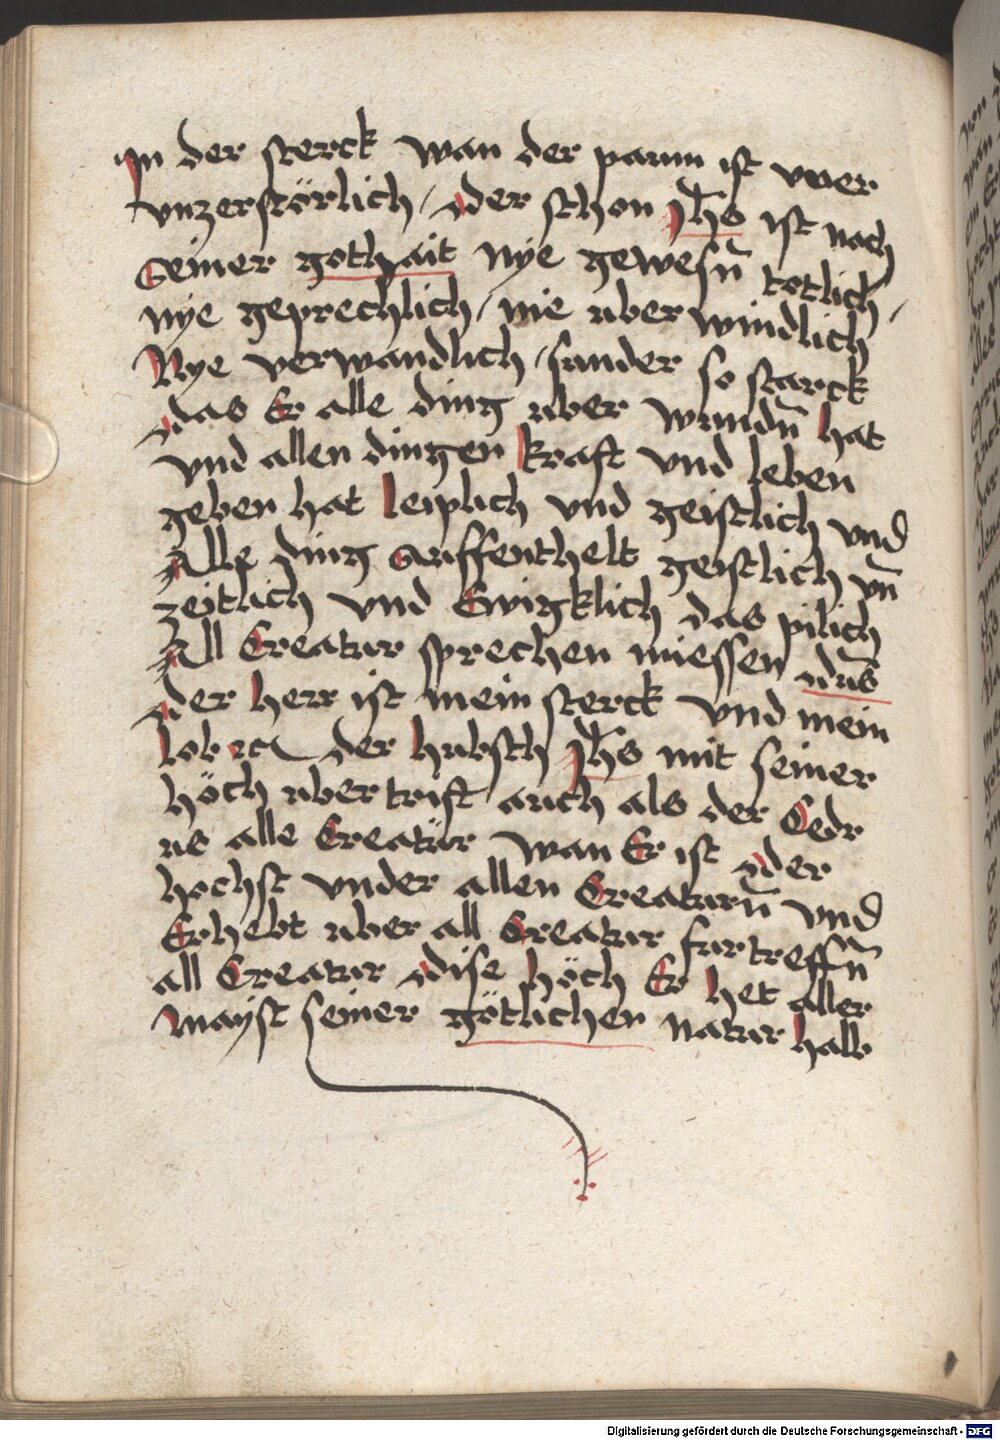 In der sterck wan der paum ist vver
vnzerstörlich / der schon jh̄s ist nach
seiner gothait nye gewesn̄ totlich /
nye geprechlich / nie uber windlich
Nye verwandlich / sunder so starck
das Er alle ding uber wundn̄ hat
vnd allen dingen kraft vnd leben
geben hat leiplich vnd geistlich vnd
Alle ding auffenthelt geistlich vn̄
zeitlich vnd Ewigklich das pilich
All Creatur sprechen miessen dn̄s
der herr ist mein sterck vnd mein
lob ⁊c der hubsch jh̄s mit seiner
höch uber trift auch als der Cedr
us alle Creatür wan Er ist der
hochst vnder allen Creaturn̄ vnd
Erhebt uber all Creatur fur treffn̄
all Creatur dise höch Er het aller
mayst seiner götlichen natur halb
Digitalisierung gefördert durch die Deutsche Forschungsgemeinschaft - DFG